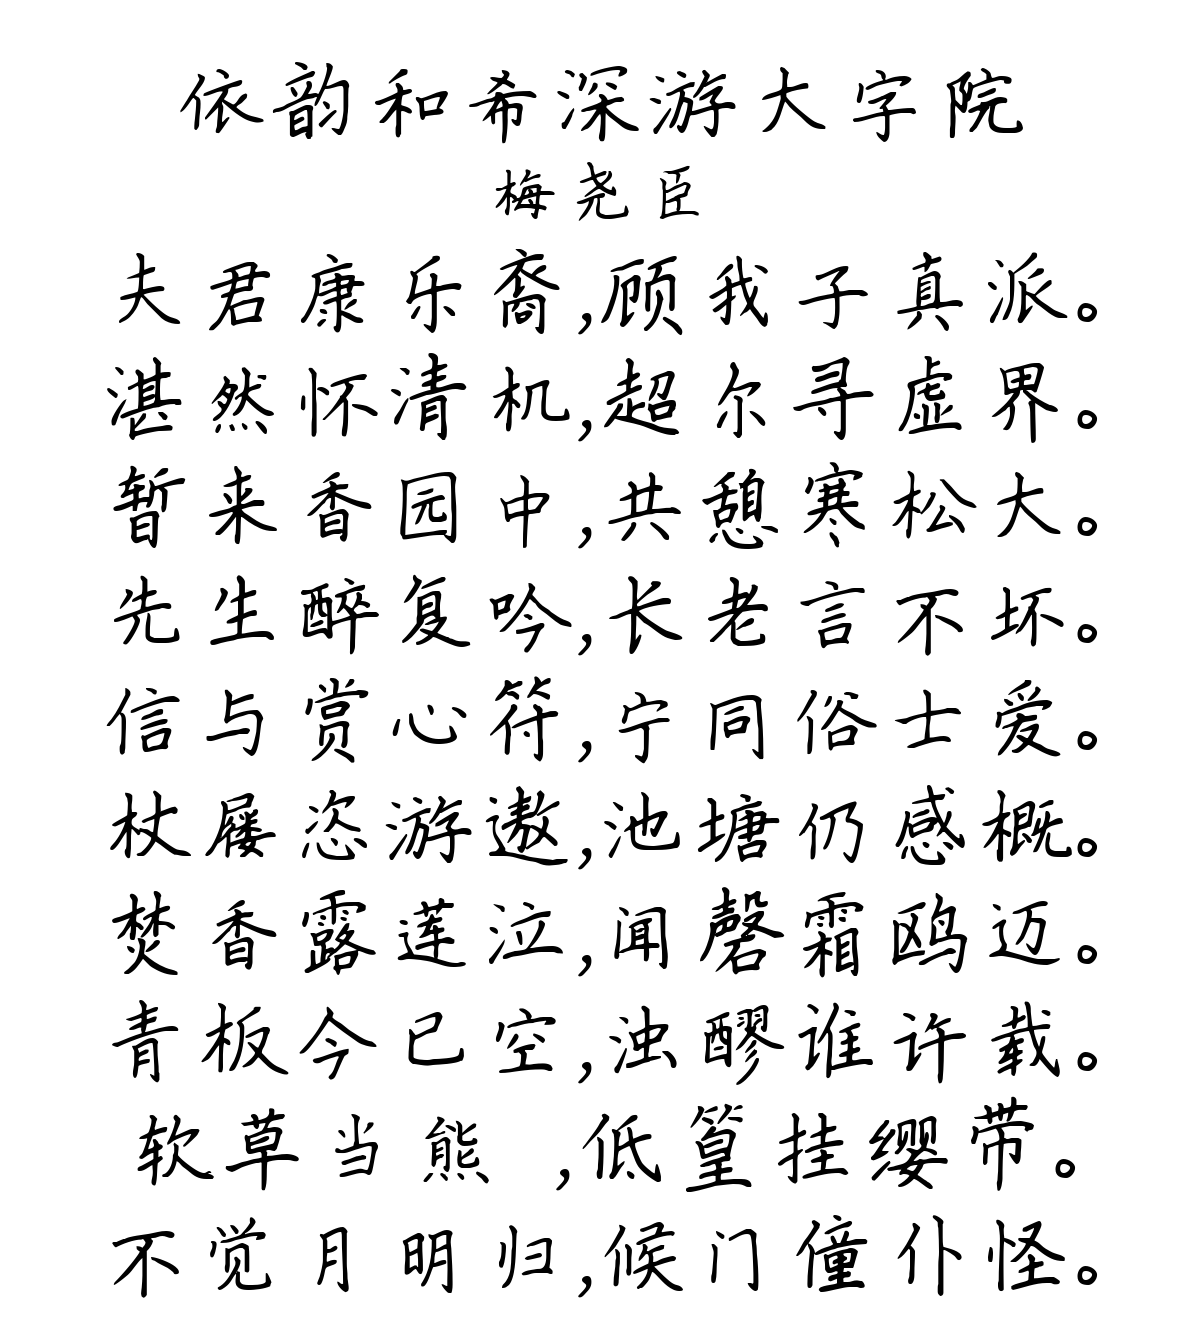 依韵和希深游大字院
梅尧臣
夫君康乐裔,顾我子真派。
湛然怀清机,超尔寻虚界。
暂来香园中,共憩寒松大。
先生醉复吟,长老言不坏。
信与赏心符,宁同俗士爱。
杖屦恣游遨,池塘仍感概。
焚香露莲泣,闻磬霜鸥迈。
青板今已空,浊醪谁许载。
软草当熊 ,低篁挂缨带。
不觉月明归,候门僮仆怪。